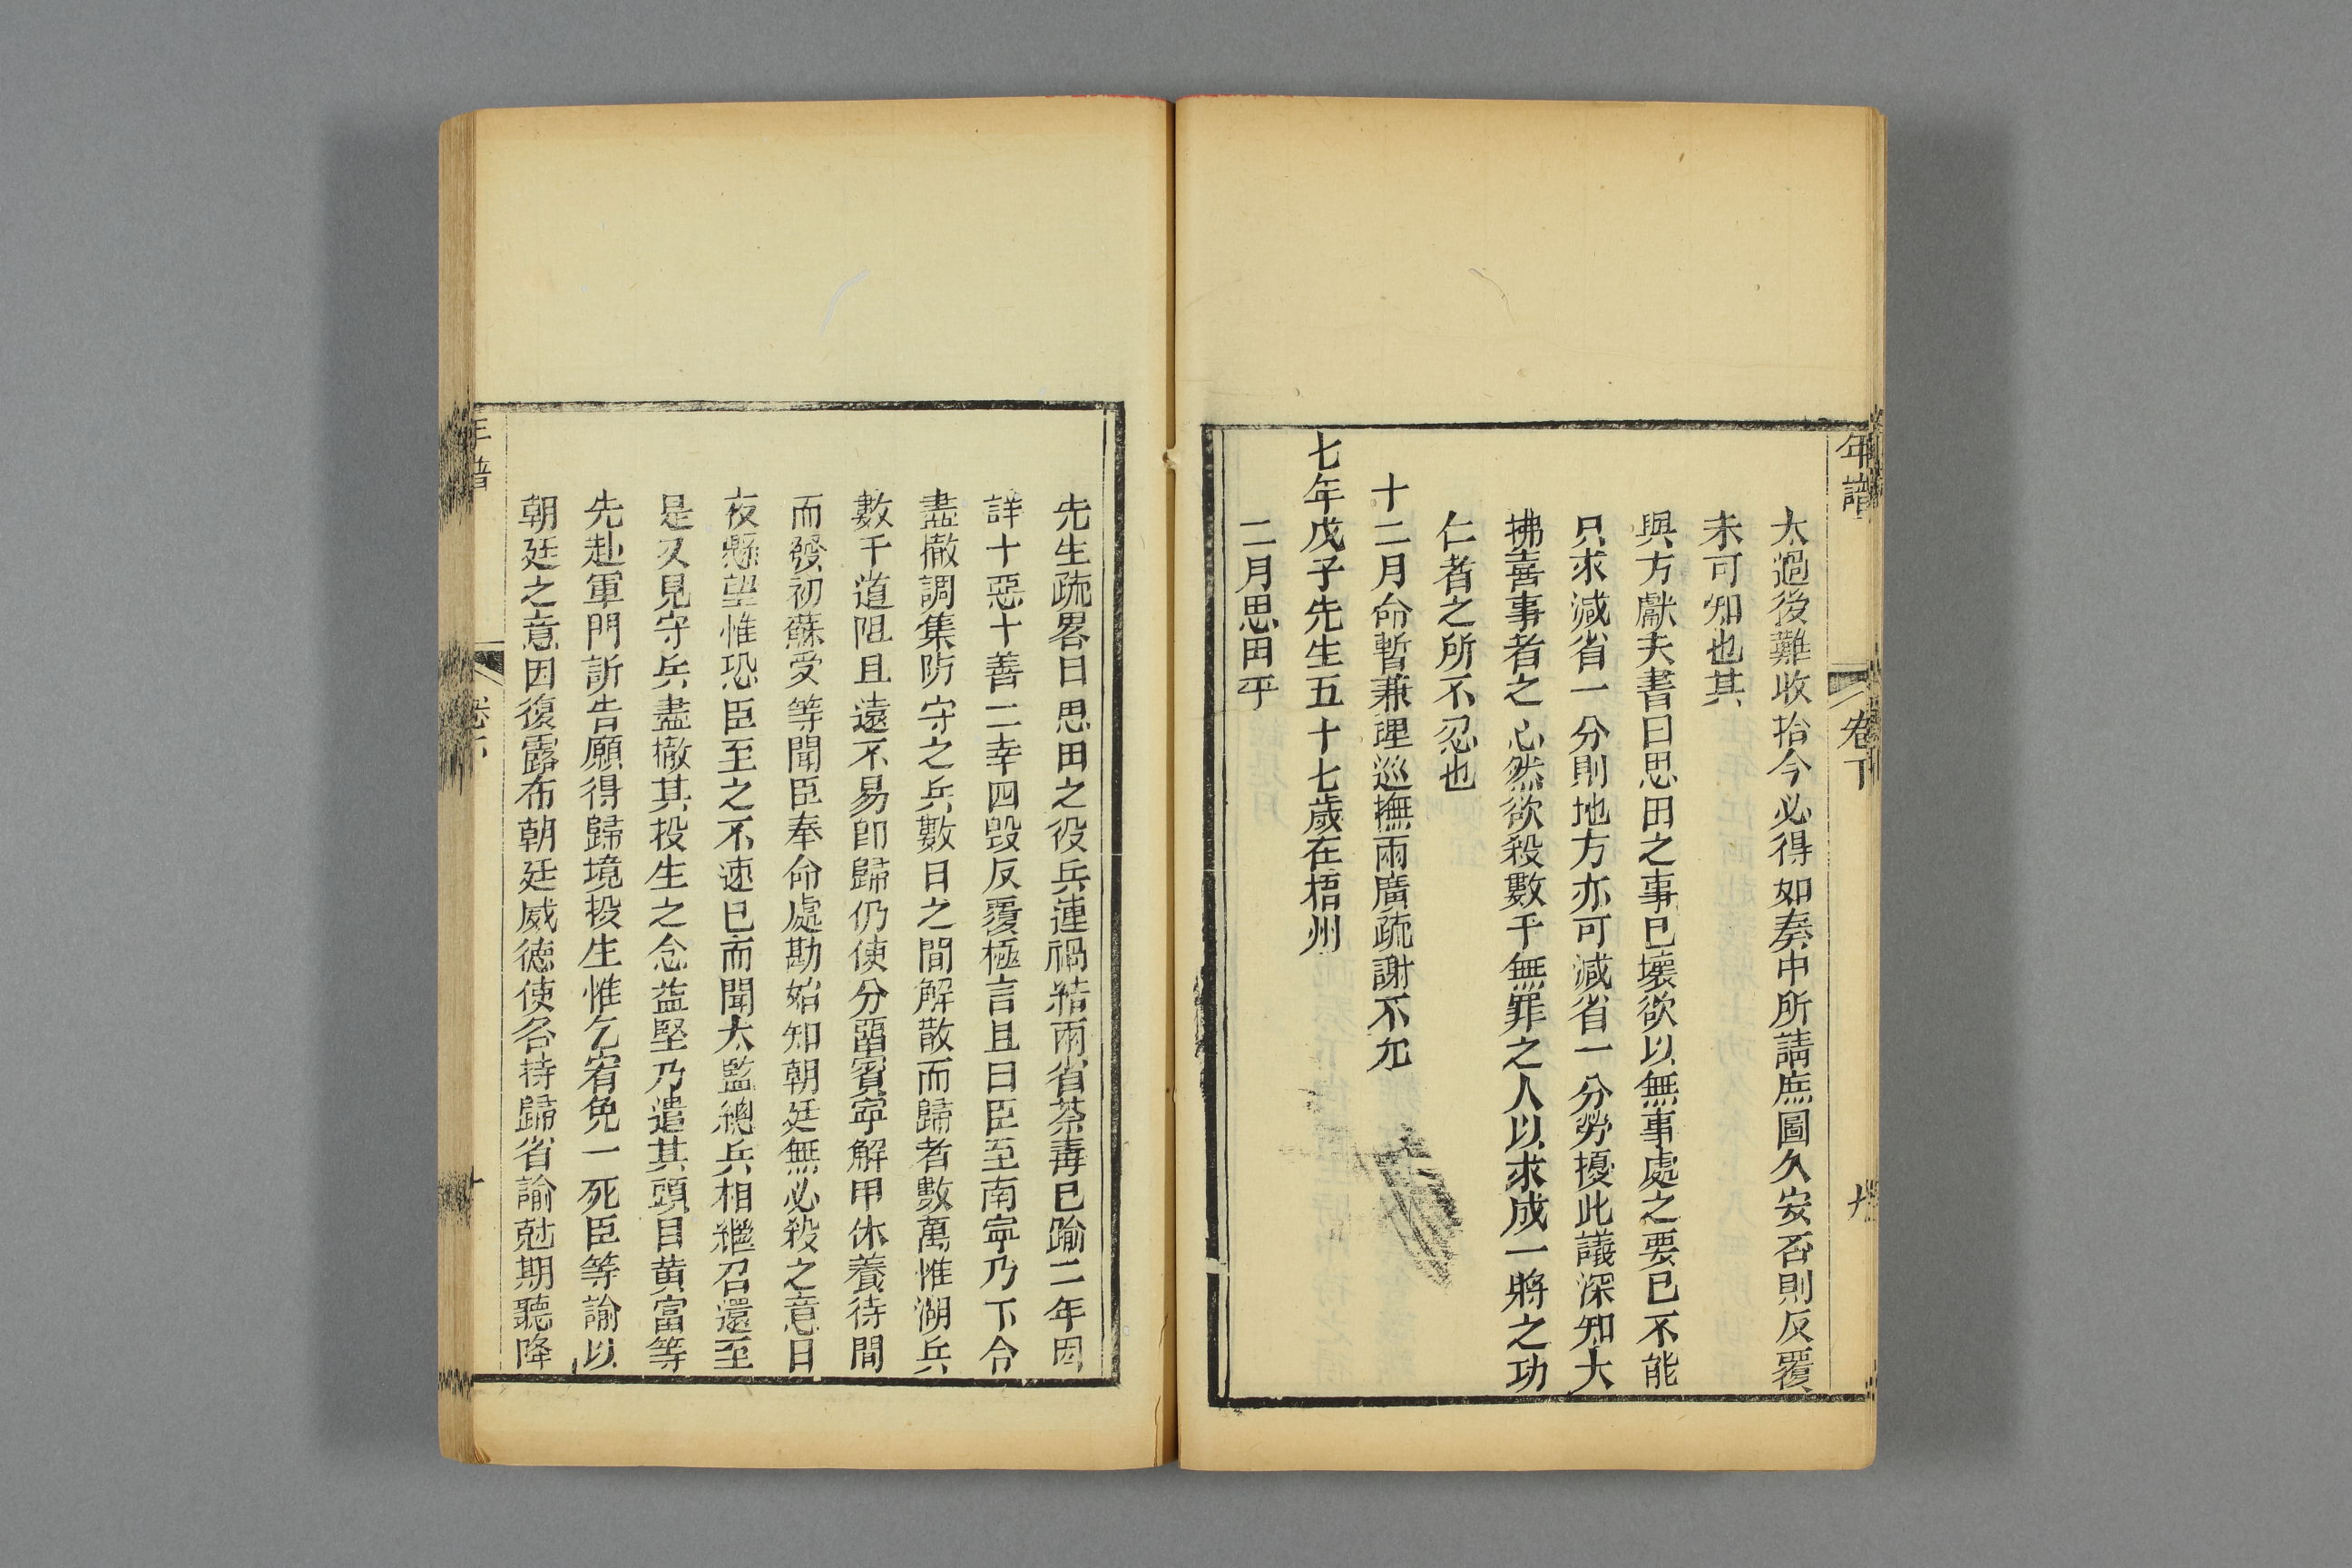 年譜 卷下
太過後難收拾今必得如奏中所請庶圖久安否則反覆
未可知也其
與方獻夫書曰思田之事已壞欲以無事處之要已不能
只求減省一分則地方亦可減省一分勞擾此議深知大
拂喜事者之心然欲殺數千無罪之人以求成一將之功
仁者之所不忍也
十二月命暫兼理巡撫兩廣疏謝不允
七年戊子先生五十七歲在梧州
二月思田平
先生疏畧曰思田之役兵連禍結兩省荼毒已踰二年因
詳十惡十善二幸四毀反覆極言且曰臣至南寧乃下令
盡撤調集防守之兵數日之間解散而歸者數萬惟湖兵
數千道阻且遠不易即歸仍使分留賓寧解甲休養待間
而發初蘇受等聞臣奉命處勘始知朝廷無必殺之意日
夜懸望惟恐臣至之不速已而聞太監總兵相繼召還至
是又見守兵盡撤其投生之念益堅乃遣其頭目黃富等
先赴軍門訴告願得歸境投生惟乞宥免一死臣等諭以
朝廷之意因復露布朝廷威德使各持歸省諭尅期聽降
年譜